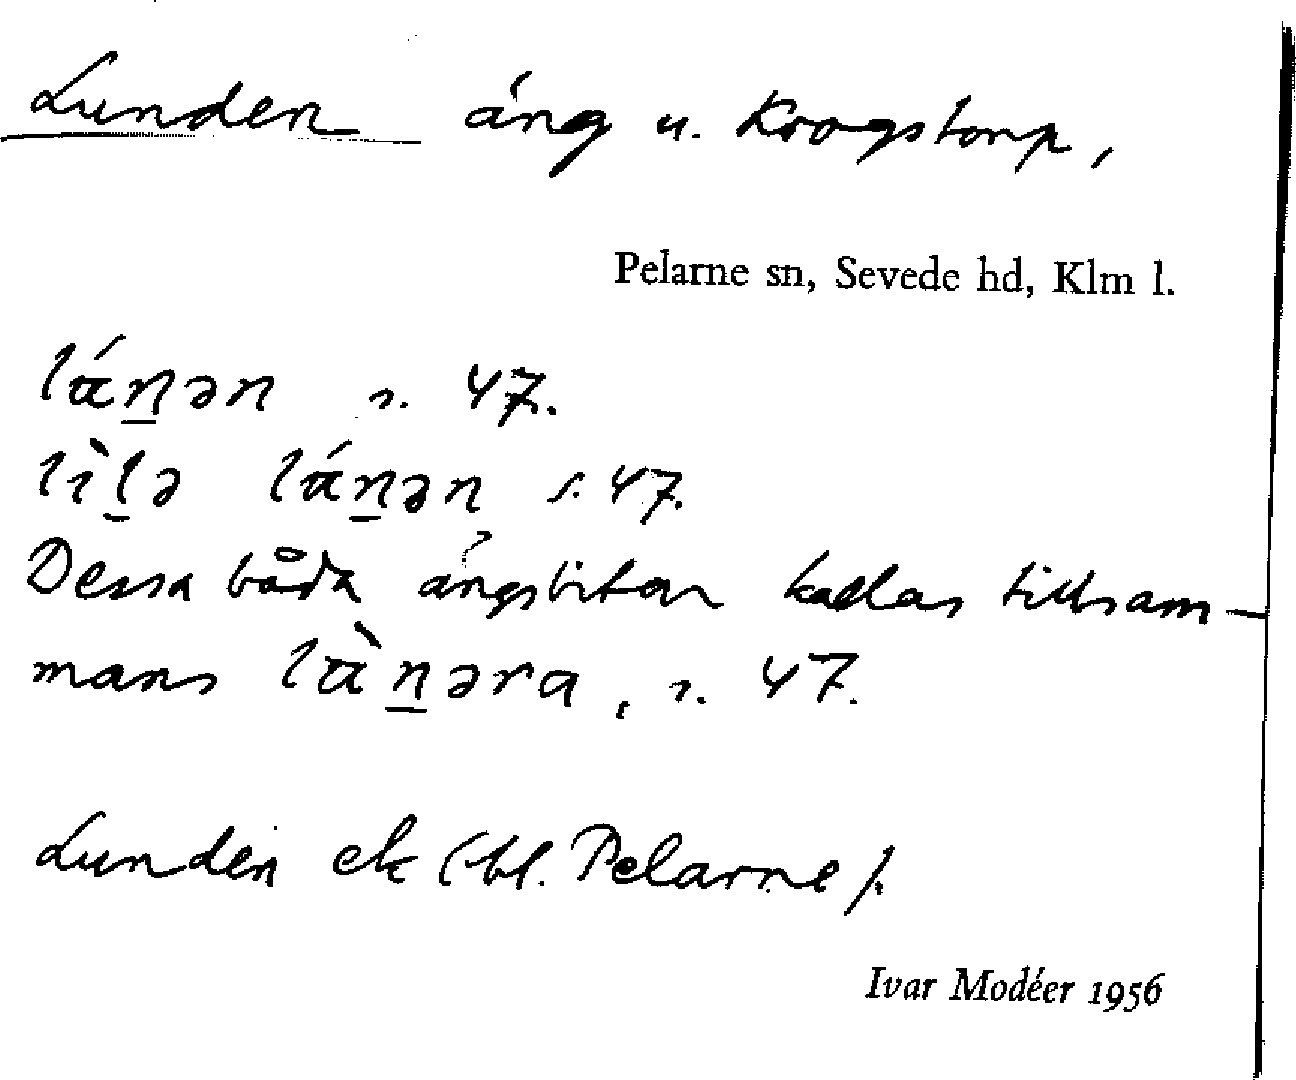 Lunden äng u. Krogstorp,
Pelarne sn, Sevede hd, Klm l.
lán̲ən s. 47.
lìl̲ə lán̲ən s. 47.
Dessa båda ängsbitar kallas tillsam-
mans làn̲əra, s. 47.
Lunden ek (bl. Pelarne).
Ivar Modéer 1956